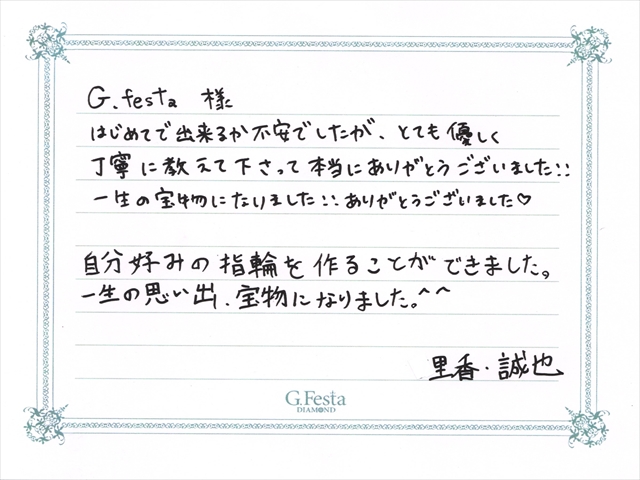 G.festa 様
はじめてで出来るか不安でしたが、とても優しく
丁寧に教えて下さって本当にありがとうございました!!
一生の宝物になりました!!ありがとうございました♡
自分好みの指輪を作ることができました。
一生の思い出、宝物になりました。^^
里香・誠也
G.Festa
DIAMOND